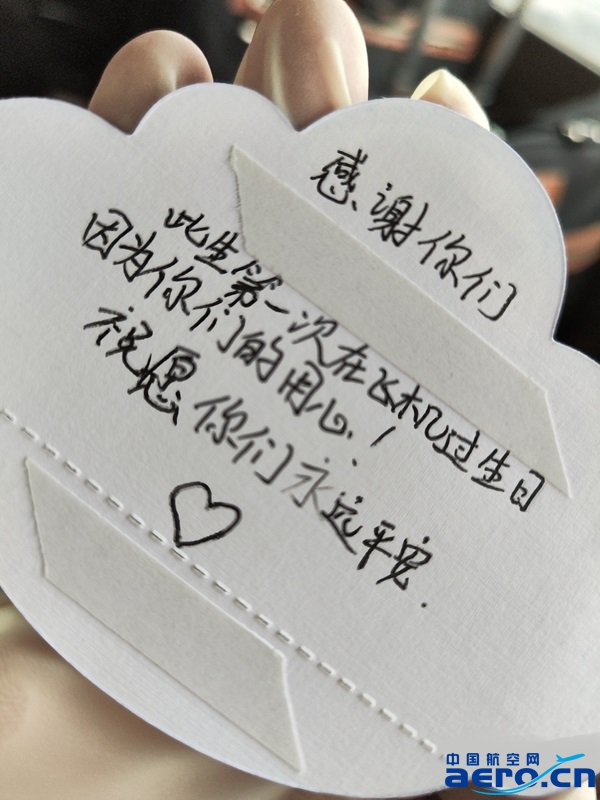 感谢你们
此生第一次在飞机过生日
因为你们的用心！
祝愿你们永远平安.
中国航空网
aero.cn